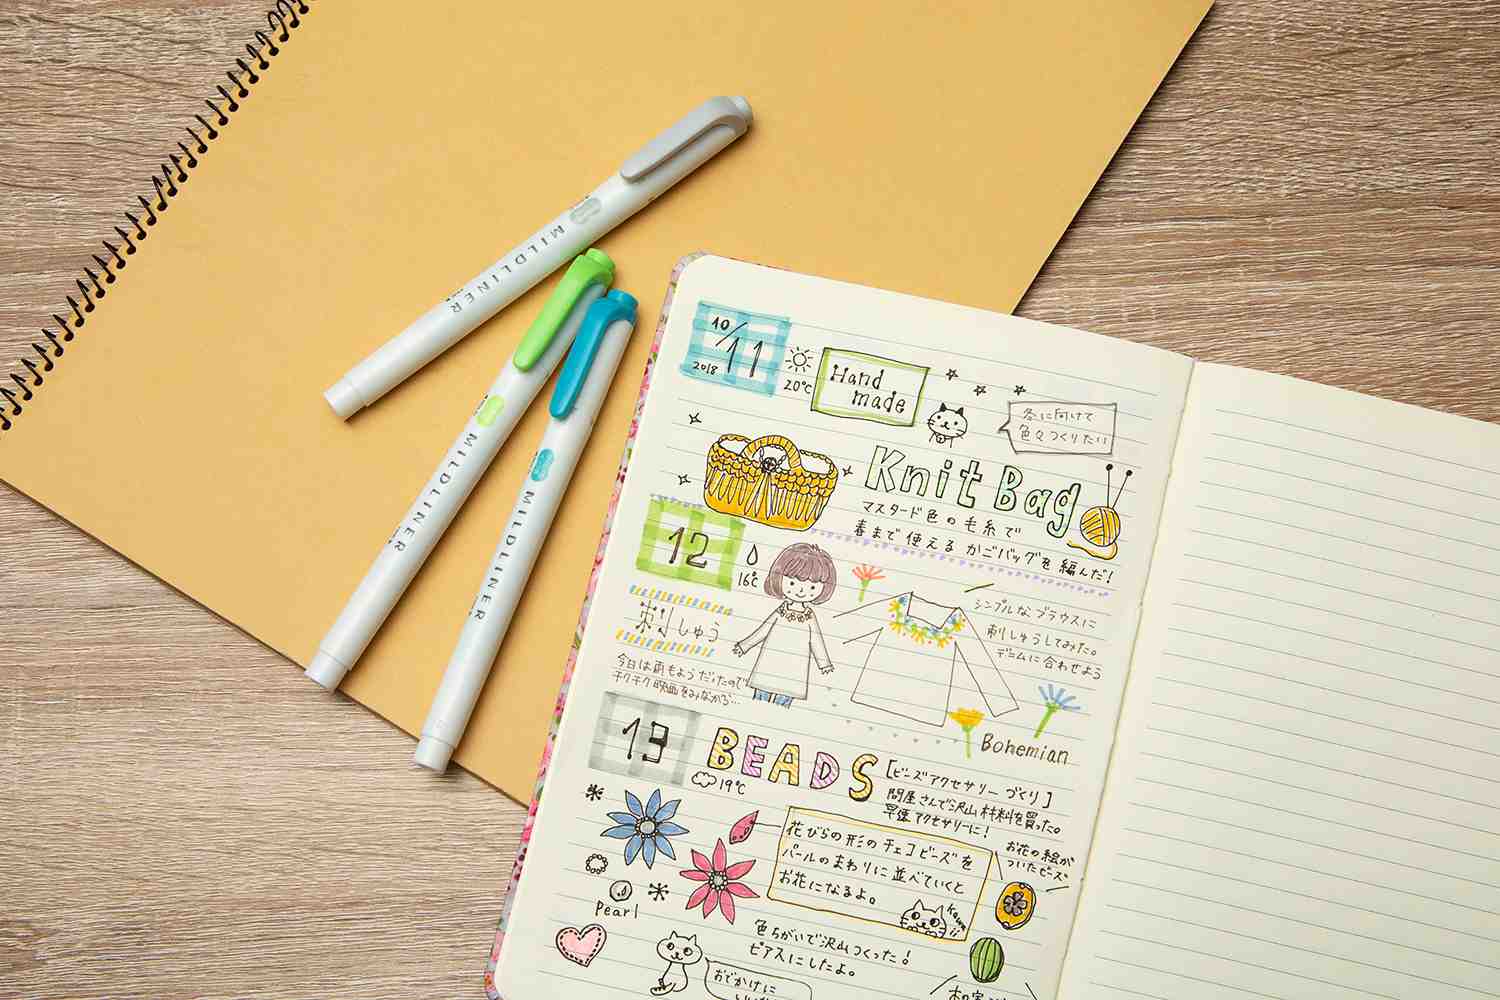 MILDLINER
MILDLINER
MILDLINER
10/11
2018
20°C
Hand
made
冬に向けて
色々つくりたい
Knit Bag
マスタード色の毛糸で
春まで使えるかごバッグを編んだ!
12
16℃
刺しゅう
今日は雨もようだったので
チクチク映画をみながら…
シンプルなブラウスに
刺しゅうしてみた。
デニムに合わせよう
Bohemian
13
19℃
BEADS
[ビーズアクセサリーづくり]
問屋さんで沢山材料を買った。
早速アクセサリーに!
花びらの形のチェコビーズを
パールのまわりに並べていくと
お花になるよ。
kawaii
お花の絵が
ついたビーズ
Pearl
色ちがいで沢山つくった!
ピアスにしたよ。
おでかけに
木の実